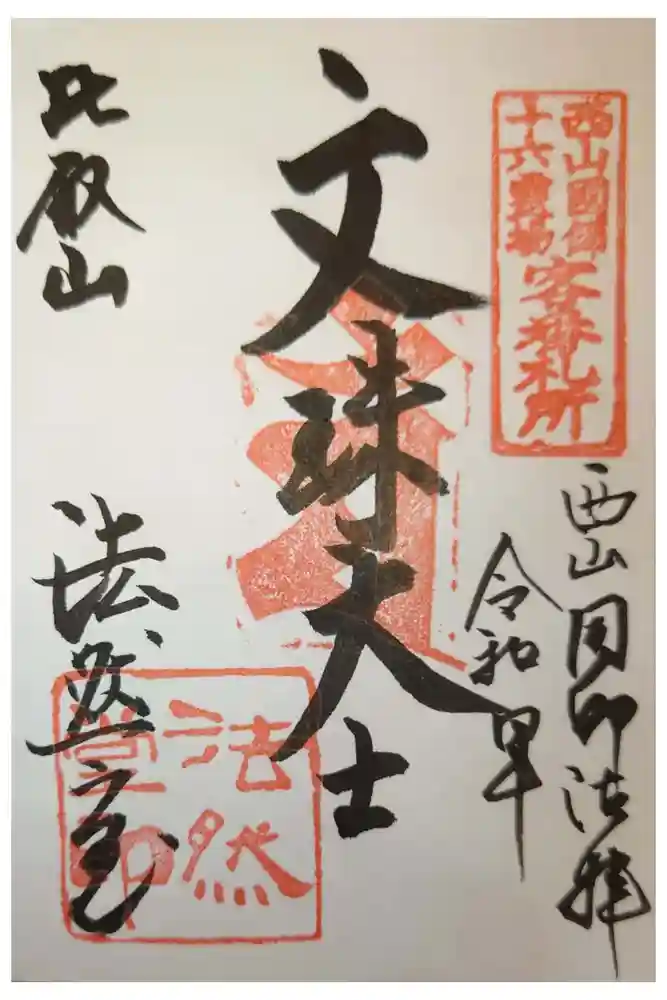 西山國師
十六霊場
客番札所
西山
令和
文珠大士
比叡山
法然堂
法然
堂印